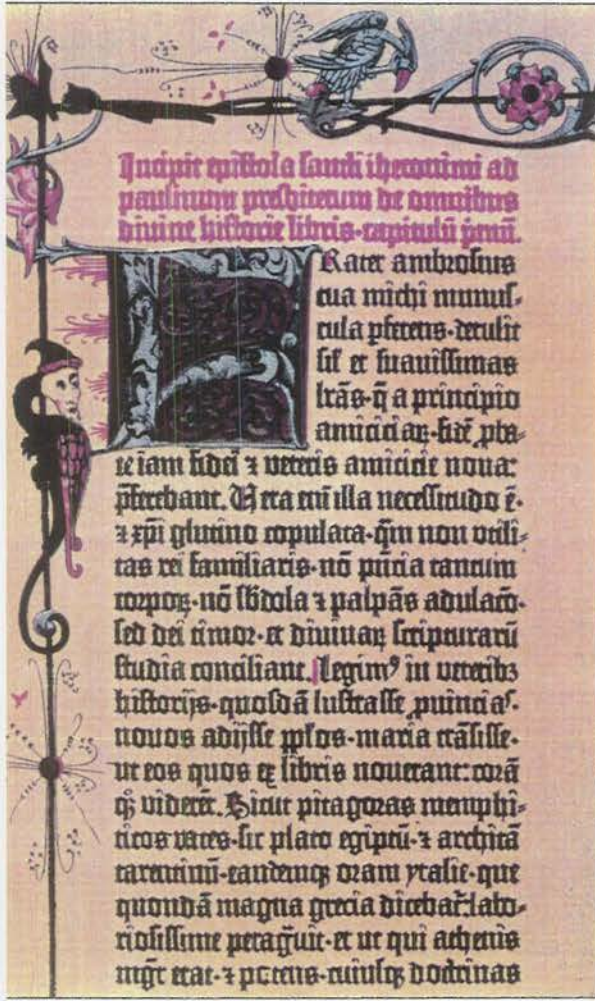 Incipit epistola sancti iheronimi ad
paulinum presbiterum de omnibus
divine historie libris·capitulū pmū.
Frater ambrosius
tua michi munus-
cula pferens·detulit
sił et suavissimas
lrās·q̄ a principio
amiciciaꝝ·fidē ꝓba-
te iam fidei ⁊ veteris amicicie nova:
pferebant. Vera eni illa necessitudo ē·
⁊ xpi glutino copulata·qm non utili-
tas rei familiaris·nō pñcia tantum
corpoꝝ·nō sbdola ⁊ palpās adulacō·
sed dei timor·et divinaꝝ scripturarū
studia conciliant. Legimꝰ in veteribꝫ
historijs·quosdā lustrasse ꝓvincias·
novos adijsse pplos·maria trāsisse·
ut eos quos ex libris noverant: corā
qꝫ viderēt. Sicut pitagoras memphi-
ticos vates·sic plato egiptū·⁊ architā
tarentinū·eandemqꝫ oram ytalie·que
quondā magna grecia dicebat: labo-
riosissime peragvit·et ut qui athenis
mgr erat·⁊ potens·cuiusqꝫ doctrinas